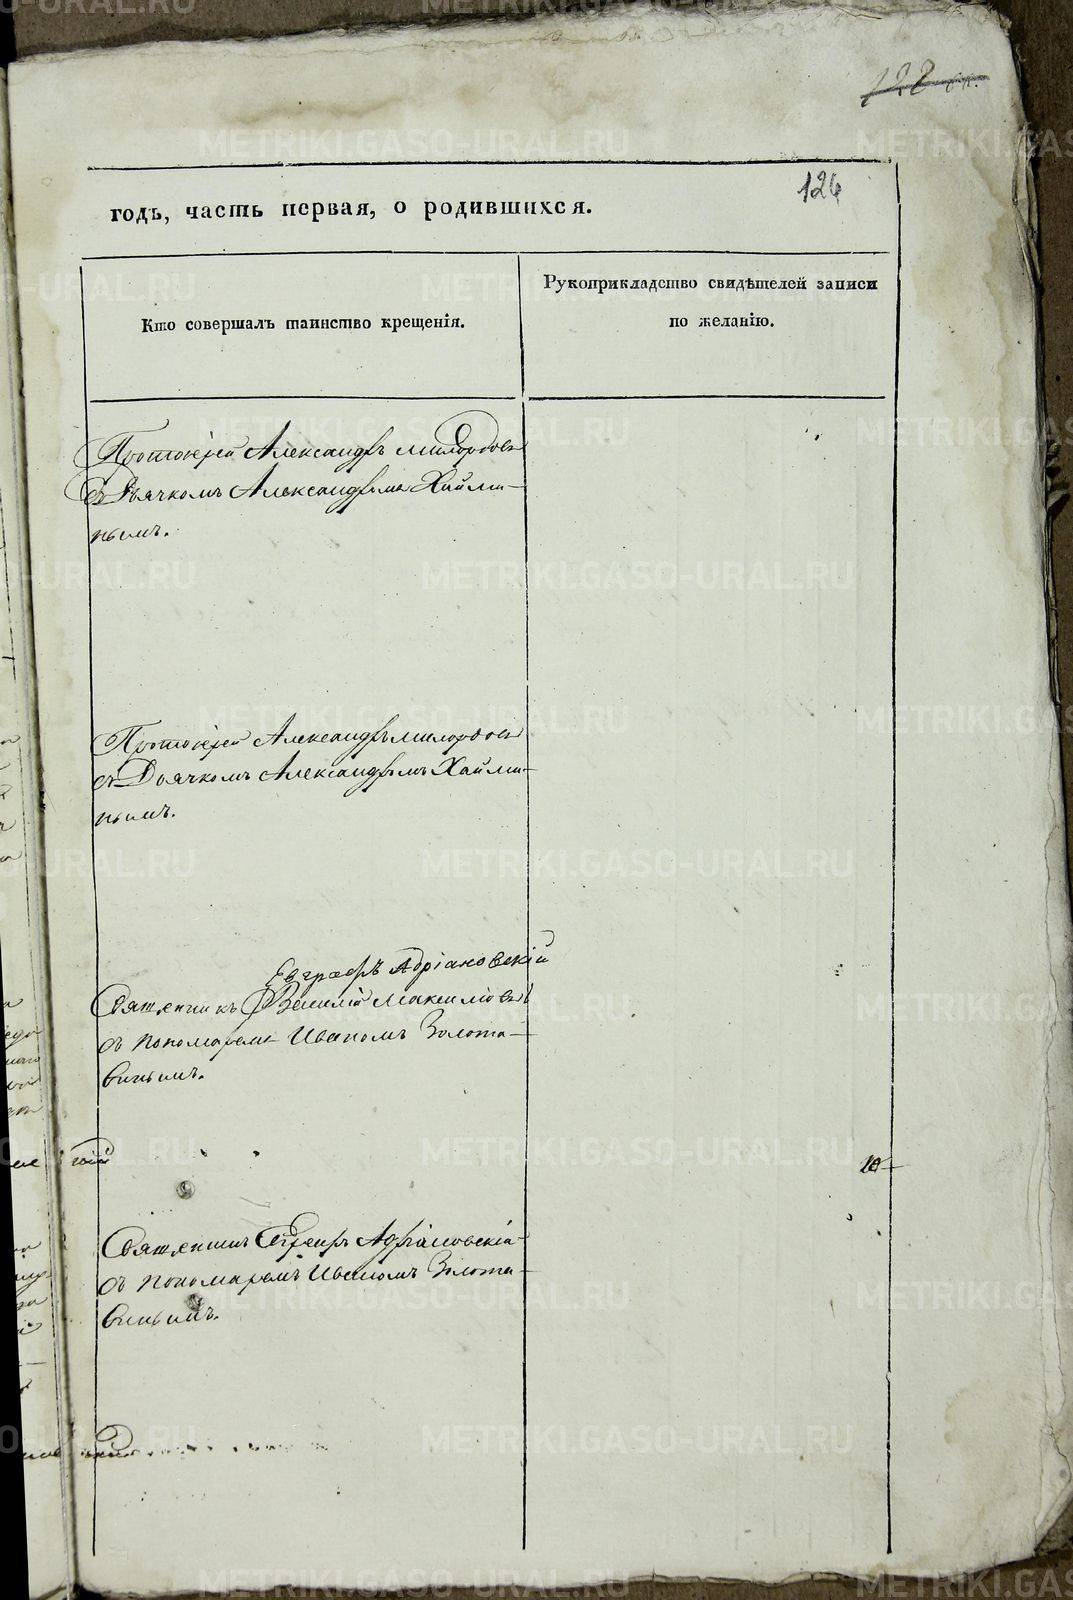 126
годъ, часть первая, о родившихся.
Кто совершалъ таинство крещенія.
Рукоприкладство свидѣтелей записи
по желанію.
Протоіерей Александръ Милордовъ
съ Дьячкомъ Александромъ Хайми-
нымъ.
Протоіерей Александръ Милордовъ
съ Дьячкомъ Александромъ Хайми-
нымъ.
Евграфъ Адріановскій
Священникъ Василій Максимовъ
съ пономаремъ Иваномъ Золота-
винымъ.
Священникъ Евграфъ Адріановскій
съ пономаремъ Иваномъ Золота-
винымъ.
METRIKI.GASO-URAL.RU